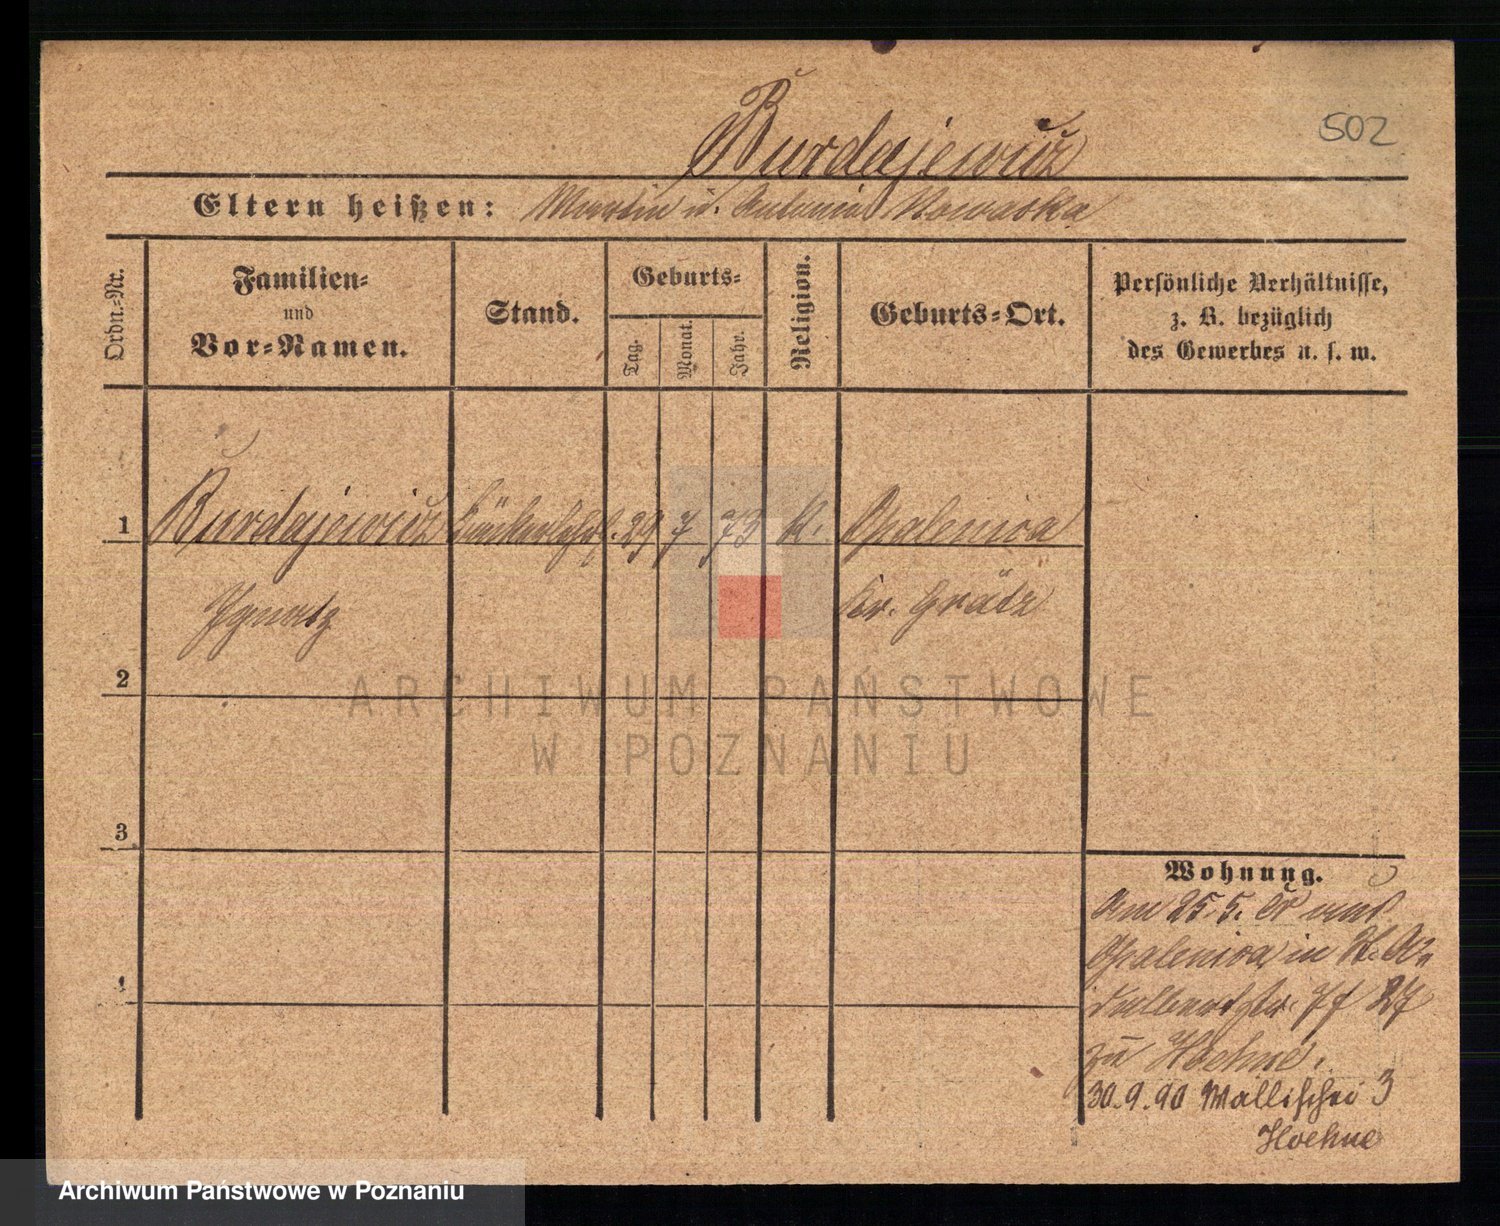 502
Burdajewicz
Eltern heißen: Martin u. Antonia Nowaska
Ordn.-Nr.
Familien-
und
Vor-Namen.
Stand.
Geburts-
Tag.
Monat.
Jahr.
Religion.
Geburts-Ort.
Persönliche Verhältnisse,
z. B. bezüglich
des Gewerbes u. s. w.
1 Burdajewicz 29 7 73 k. Opalenica
Ignatz Kr. Grätz
2
3
4
Wohnung.
Am 25.5. Cr aus
Opalenica in
27
zu Hoehne.
30.9.90 Wallischei 3
Hoehne
ARCHIWUM PAŃSTWOWE
W POZNANIU
Archiwum Państwowe w Poznaniu